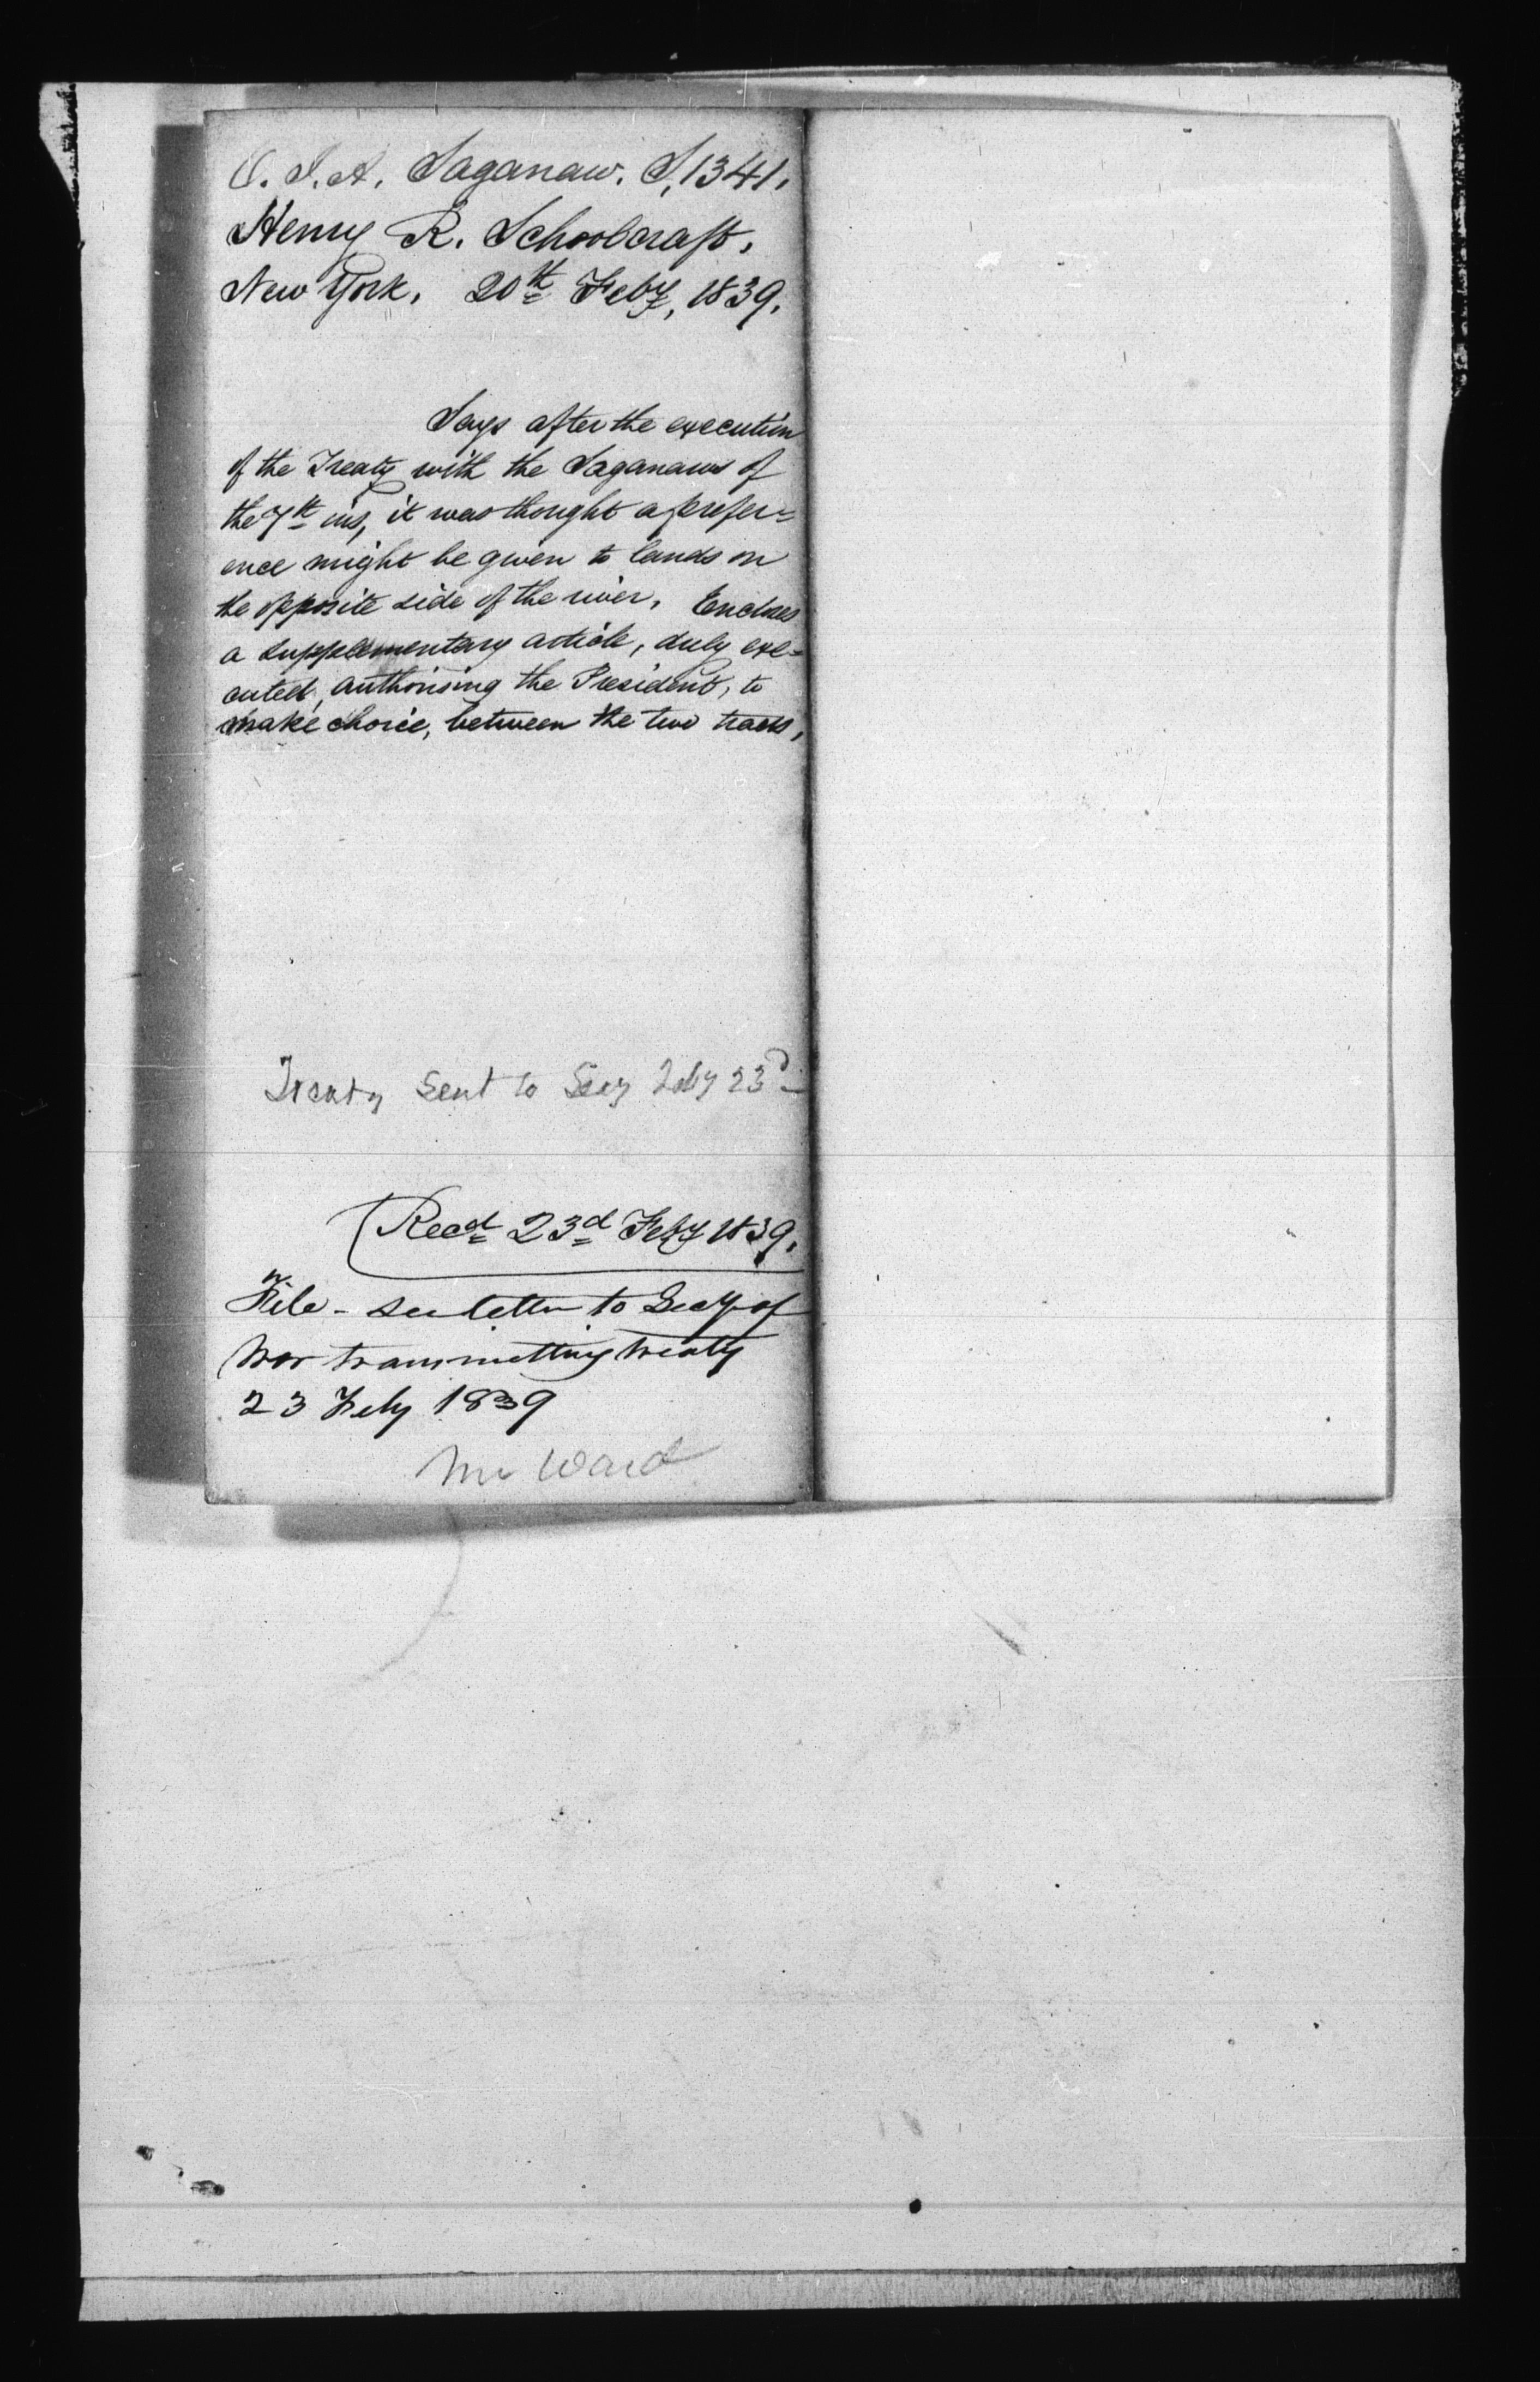 O. I. A. Saganaw. S, 1341.
Henry R. Schoolcraft,
New York. 20th Feby, 1839.
Says after the execution
of the Treaty with the Saganaws of
the 7th ins, it was thought a prefer=
ence might be given to lands on
the opposite side of the river. Encloses
a supplementary article, duly exe=
cuted, authorising the President, to
make choice, between the two tracts,
Treaty sent to Secy Feby 23d
Recd 23d Feby 1839.
File - see letter to Secy of
War transmitting treaty
23 Feby 1839
Mr Ward